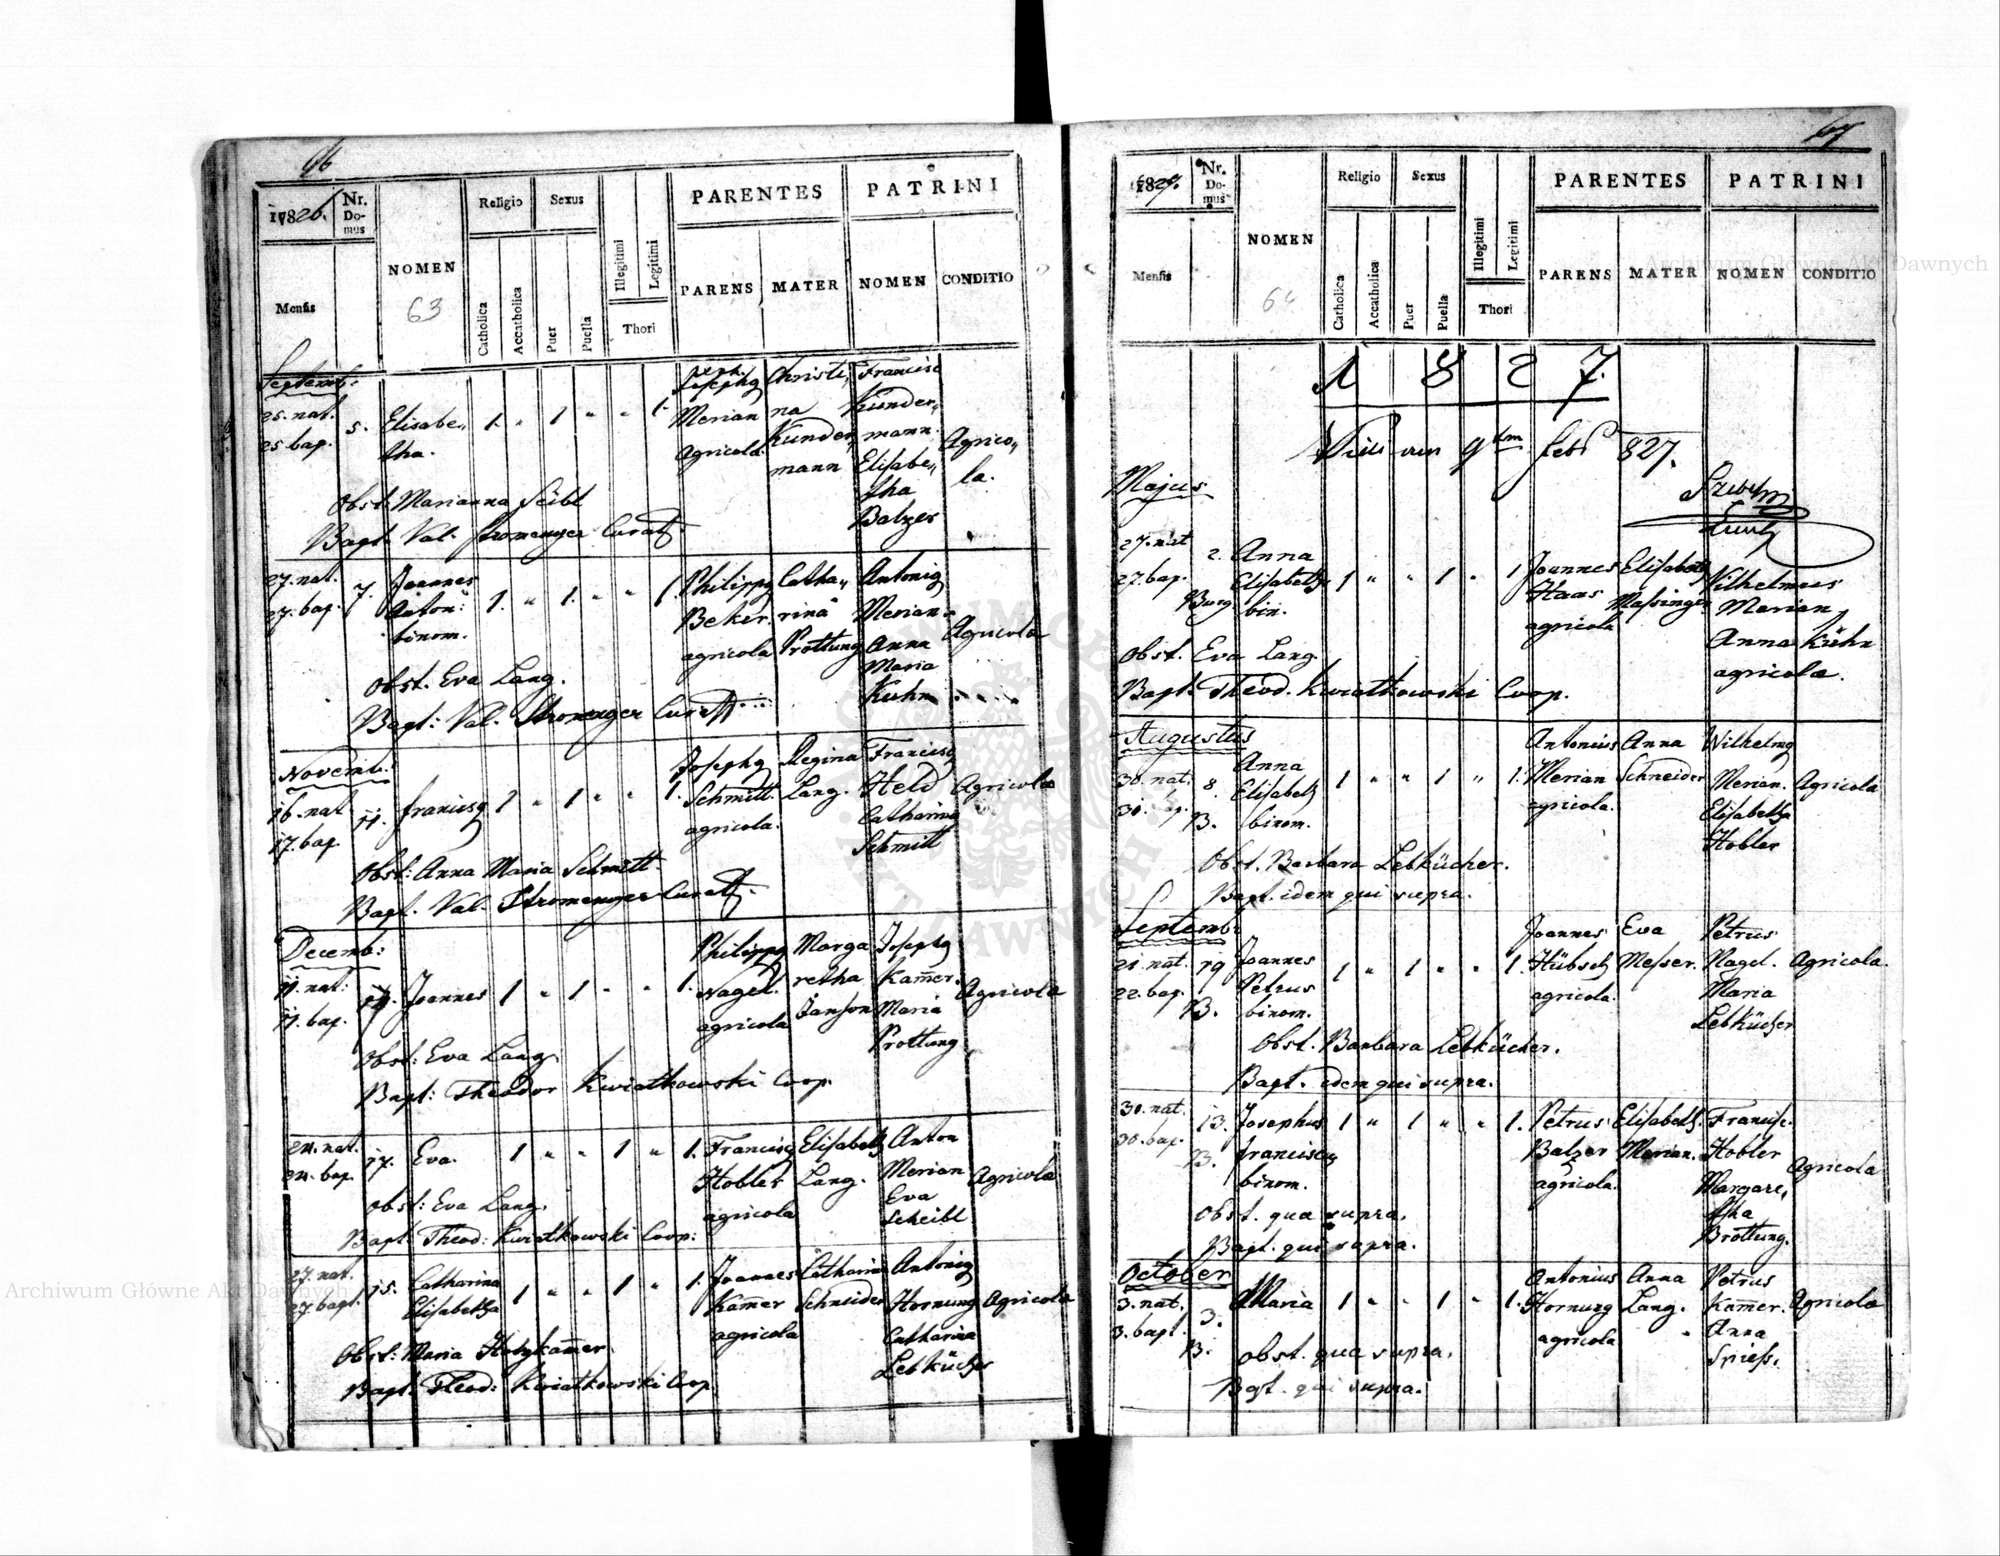 66
1826.
Nr. Domus
NOMEN
63
Religio
Sexus
PARENTES
PATRINI
Mensis
Catholica
Accatholica
Puer
Puella
Illegitimi
Legitimi
Thori
PARENS
MATER
NOMEN
CONDITIO
Septemb:
25. nat.
25 bap.
5.
Elisabe„
tha.
1. „ 1 „ „ 1.
Josephg
Merian
agricola.
Christi„
na
Kunder„
mann
Francisc
Kunder„
mann.
Elisabe„
tha
Balzer
Agrico„
la.
Obst. Marianna Seibl
Bapt. Val. Stromenger Curat.
27. nat.
27. bap.
7.
Joannes
Anton:
binom.
1. „ 1. „ „ 1.
Philippg
Beker.
agricola
Catha„
rina
Prottung
Antonig
Merian.
Anna
Maria
Kuhn
Agricola
Obst. Eva Lang.
Bapt: Val. Stromenger Curat.
Novemb:
16. nat.
17. bap.
11.
Franciscg
1 „ 1 „ „ 1.
Josephg
Schmitt.
agricola.
Regina
Lang.
Franciscg
Held
Catharina
Schmitt
Agricola
Obst: Anna Maria Schmitt.
Bapt. Val. Stromenger Curat.
Decemb:
11. nat:
11. bap.
Joannes
1 „ 1 „ „ 1.
Philippg
Nagel.
agricola
Marga
retha
Janson
Josephg
Kam̄er.
Maria
Prottung
Agricola
Obst: Eva Lang.
Bapt: Theodor Kwiatkowski Coop.
24. nat.
24. bap.
17.
Eva.
1 „ „ 1 „ 1.
Franciscg
Hobler
agricola
Elisabeth
Lang.
Anton
Merian
Eva
Scheibl
Agricola
Obst: Eva Lang.
Bapt: Theod: Kwiatkowski Coop:
27. nat.
27. bapt.
15.
Catharina
Elisabetha
1 „ „ 1 „ 1.
Joannes
Kam̄er
agricola
Catharina
Schneider
Antonig
Hornung
Catharina
Lebkücher
Agricola
Obst: Maria Holzkam̄er
Bapt. Theod: Kwiatkowski Coop.
67
1827.
Nr. Domus
NOMEN
64
Religio
Sexus
PARENTES
PATRINI
Mensis
Catholica
Accatholica
Puer
Puella
Illegitimi
Legitimi
Thori
PARENS
MATER
NOMEN
CONDITIO
1 8 2 7.
827.
Majus
27. nat
27. bap.
2.
Burg
Anna
Elisabetha
bin.
1 „ „ 1 „ 1
Joannes
Haas
agricola
Elisabeth
Massinger
Wilhelmus
Merian,
Anna Kühn
agricola.
Obst. Eva Lang.
Bapt. Theod. Kwiatkowski Coop.
Augustus
30. nat.
30. bap.
8.
B.
Anna
Elisabeth
binom.
1 „ „ 1 „ 1.
Antonius
Merian
agricola.
Anna
Schneider
Wilhelmg
Merian.
Elisabetha
Hobler
Agricola
Obst. Barbara Lebkücher.
Bapt. idem qui supra.
Septemb:
21. nat.
22. bap.
19
B.
Joannes
Petrus
binom.
1 „ 1 „ „ 1.
Joannes
Hübsch
agricola.
Eva
Messer.
Petrus
Nagel.
Maria
Lebkücher
Agricola.
Obst. Barbara Lebkücher.
Bapt. idem qui supra.
30. nat.
30. bap.
13.
B.
Josephus
Franciscg
binom.
1 „ 1 „ „ 1.
Petrus
Balzer
agricola.
Elisabeth.
Merian.
Francisc.
Hobler
Margare„
tha
Brottung.
Agricola
Obst. qua supra.
Bapt. qui supra.
October
3. nat.
3. bapt.
3.
B.
Maria
1 „ „ 1 „ 1.
Antonius
Hornung
agricola
Anna
Lang.
Petrus
Kam̄er.
Anna
Spiess.
Agricola
Obst. qua supra.
Bapt. qui supra.
Archiwum Główne Akt Dawnych
Archiwum Główne Akt Dawnych